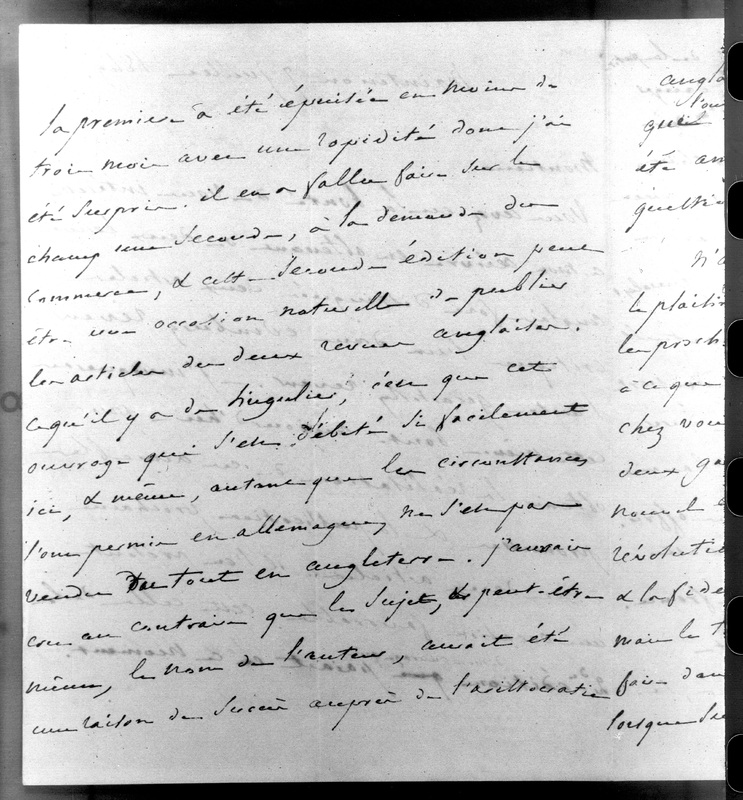 la premiere a été épuisée en moins de
trois mois avec une rapidité dont j'ai
été surpris. il en a fallu faire sur le
champ une seconde, à la demande du
commerce, & cette seconde édition peut
être une occasion naturelle de publier
les articles des deux revues anglaises.
ce qu'il y a de singulier, c'est que cet
ouvrage qui s'est débité si facilement
ici, & même, autant que les circonstances
l'ont permis en allemagne, ne s'est pas
vendu du tout en angleterre. j'aurais
cru au contraire que le sujet, & peut-être
même, le nom de l'auteur, aurait été
une raison de succès auprès de l'aristocratie
qu'il
été
n'a
le plaisir
à ce que
chez vous
deux
révolutio
& la fide
mais le
faire dan
lorsque